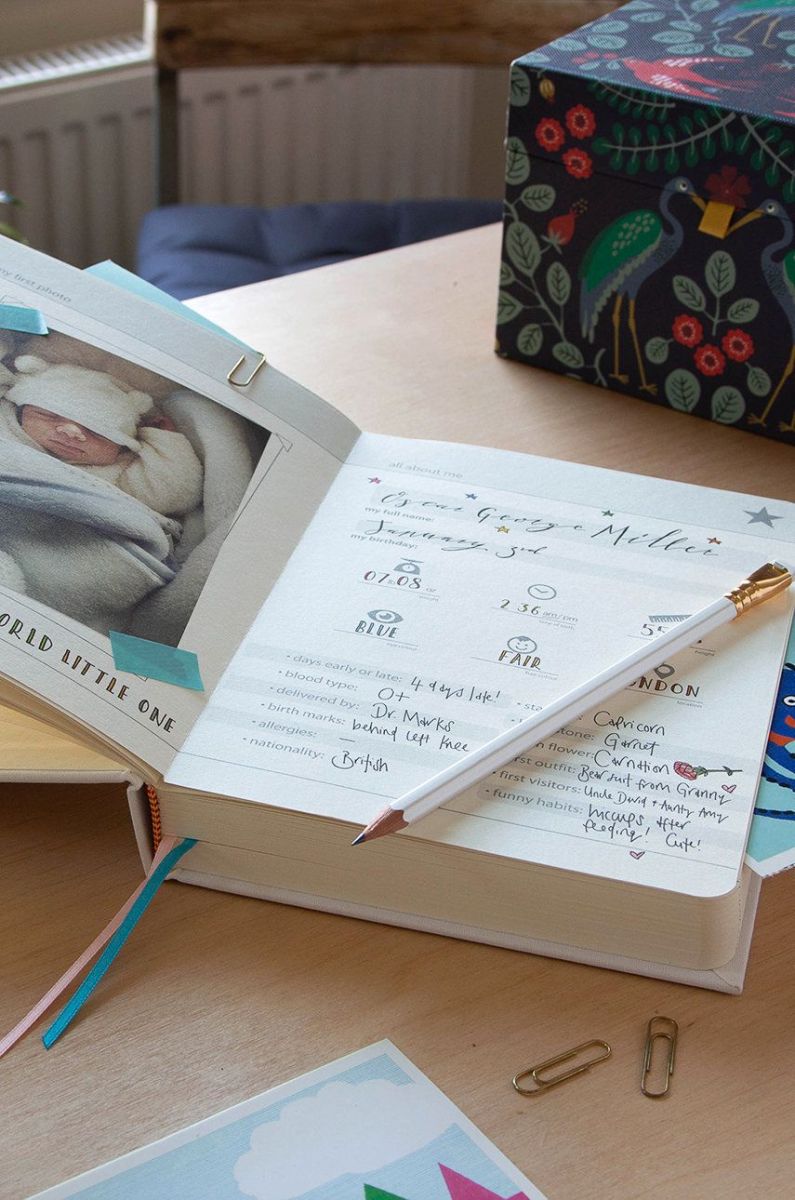 my first photo
ORLD LITTLE ONE
all about me
Oscar George Miller
my full name:
January 3rd
my birthday:
07 lb 08 oz
weight
2:36 am/pm
time of birth
55
BLUE
eye colour
FAIR
hair colour
ONDON
location
• days early or late: 4 days late!
• blood type: O+
• delivered by: Dr. Marks
• birth marks: behind left knee
• allergies: —
• nationality: British
• sta Capricorn
tone: Garnet
flower: Carnation
first outfit: Bear suit from Granny
• first visitors: Uncle David + Aunty Amy
• funny habits: hiccups after
feeding! Cute!